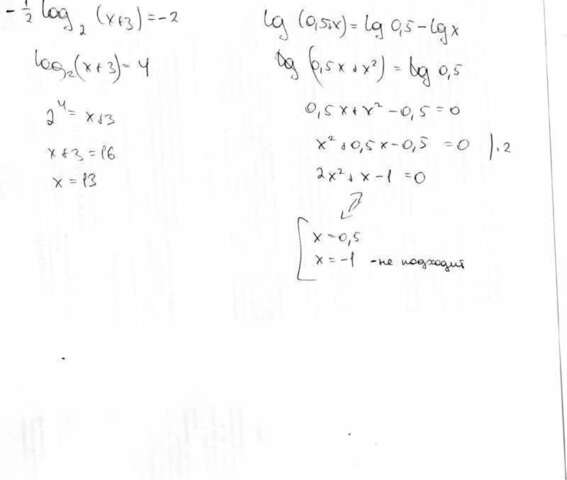 -½ log₂ (x+3) = -2
log₂(x+3) = 4
2⁴ = x+3
x+3 = 16
x = 13
lg (0,5+x) = lg 0,5 - lg x
lg (0,5x + x²) = lg 0,5
0,5x + x² - 0,5 = 0
x² + 0,5x - 0,5 = 0 | · 2
2x² + x - 1 = 0
x = 0,5
x = -1 - не подходит